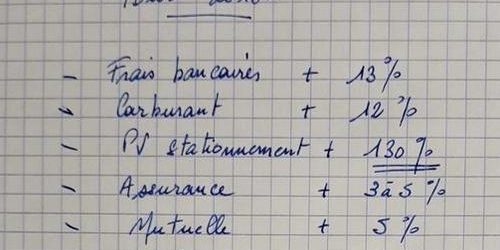 - Frais bancaires + 13%
- Carburant + 12%
- PV stationnement + 130%
- Assurance + 3 à 5%
- Mutuelle + 5%